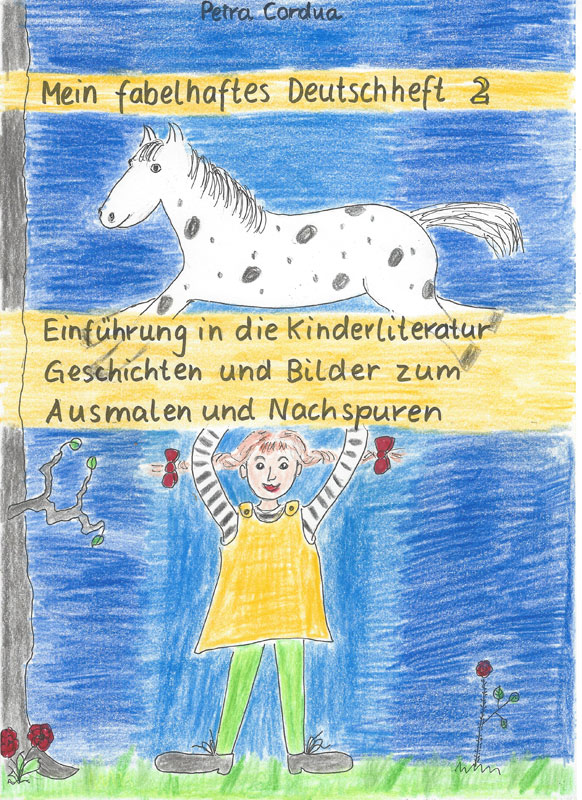 Petra Cordua
Mein fabelhaftes Deutschheft 2
Einführung in die Kinderliteratur
Geschichten und Bilder zum
Ausmalen und Nachspuren